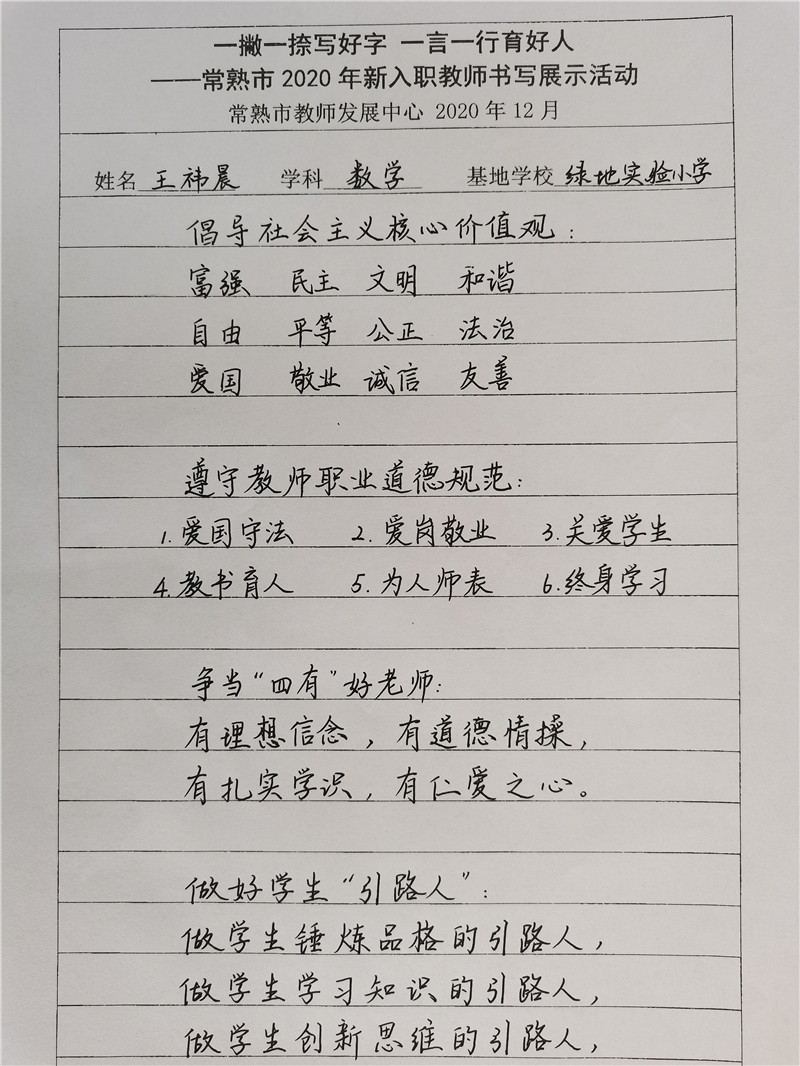 一撇一捺写好字 一言一行育好人
——常熟市 2020 年新入职教师书写展示活动
常熟市教师发展中心 2020 年 12 月
姓名 王祎晨 学科 数学 基地学校 绿地实验小学
倡导社会主义核心价值观：
富强 民主 文明 和谐
自由 平等 公正 法治
爱国 敬业 诚信 友善
遵守教师职业道德规范：
1.爱国守法 2.爱岗敬业 3.关爱学生
4.教书育人 5.为人师表 6.终身学习
争当“四有”好老师：
有理想信念，有道德情操，
有扎实学识，有仁爱之心。
做好学生“引路人”：
做学生锤炼品格的引路人，
做学生学习知识的引路人，
做学生创新思维的引路人，